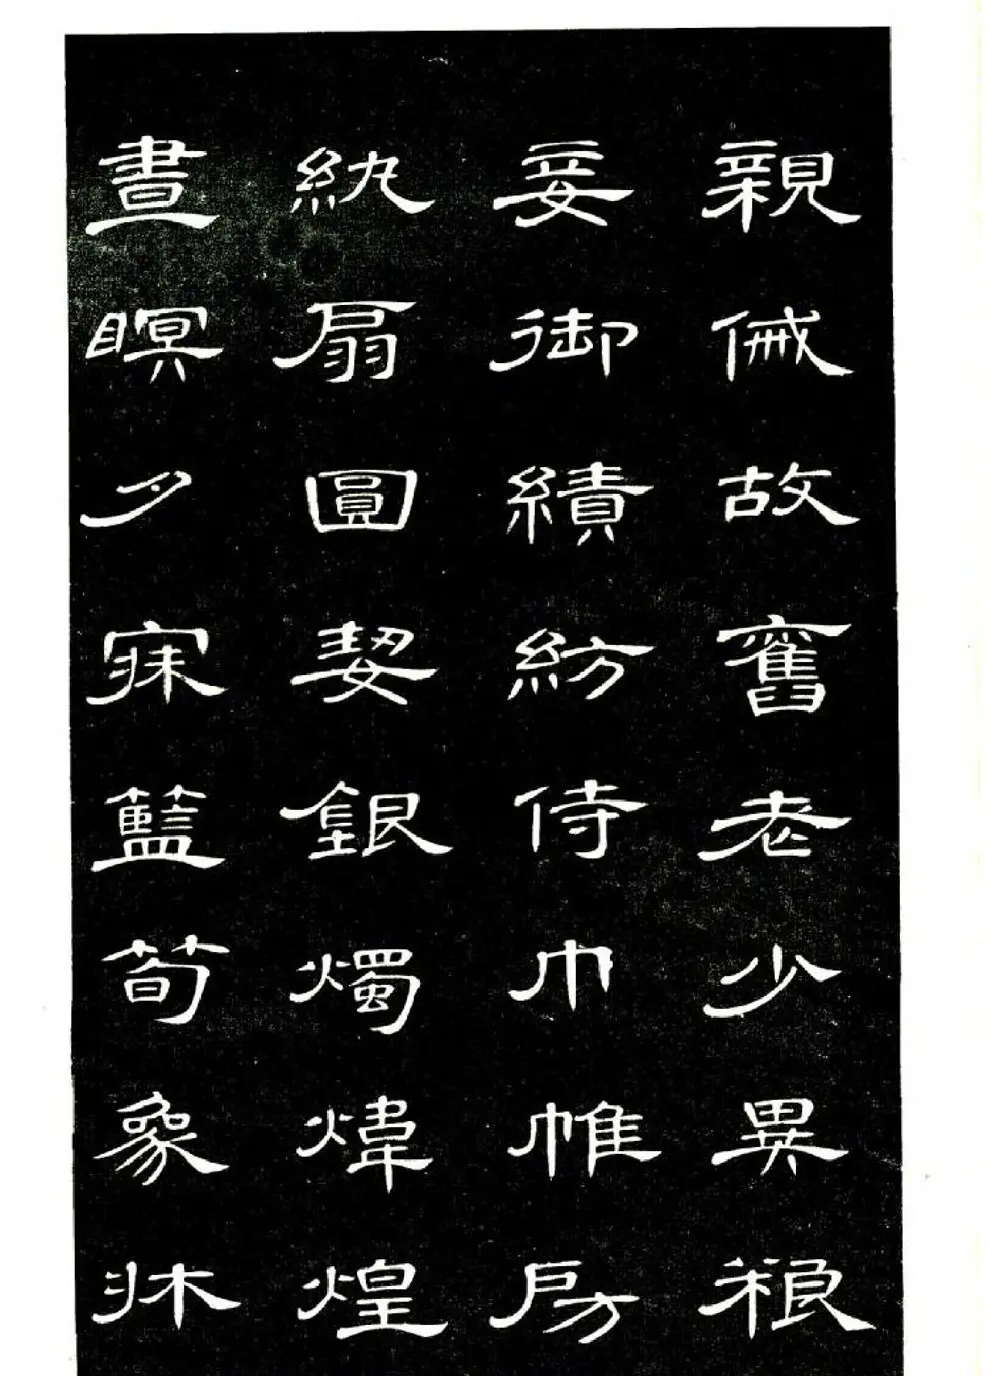 親㑘故舊老少異粮
妾御績紡侍巾帷房
紈扇圓㓗銀燭煒煌
晝瞑夕寐籃荀象牀